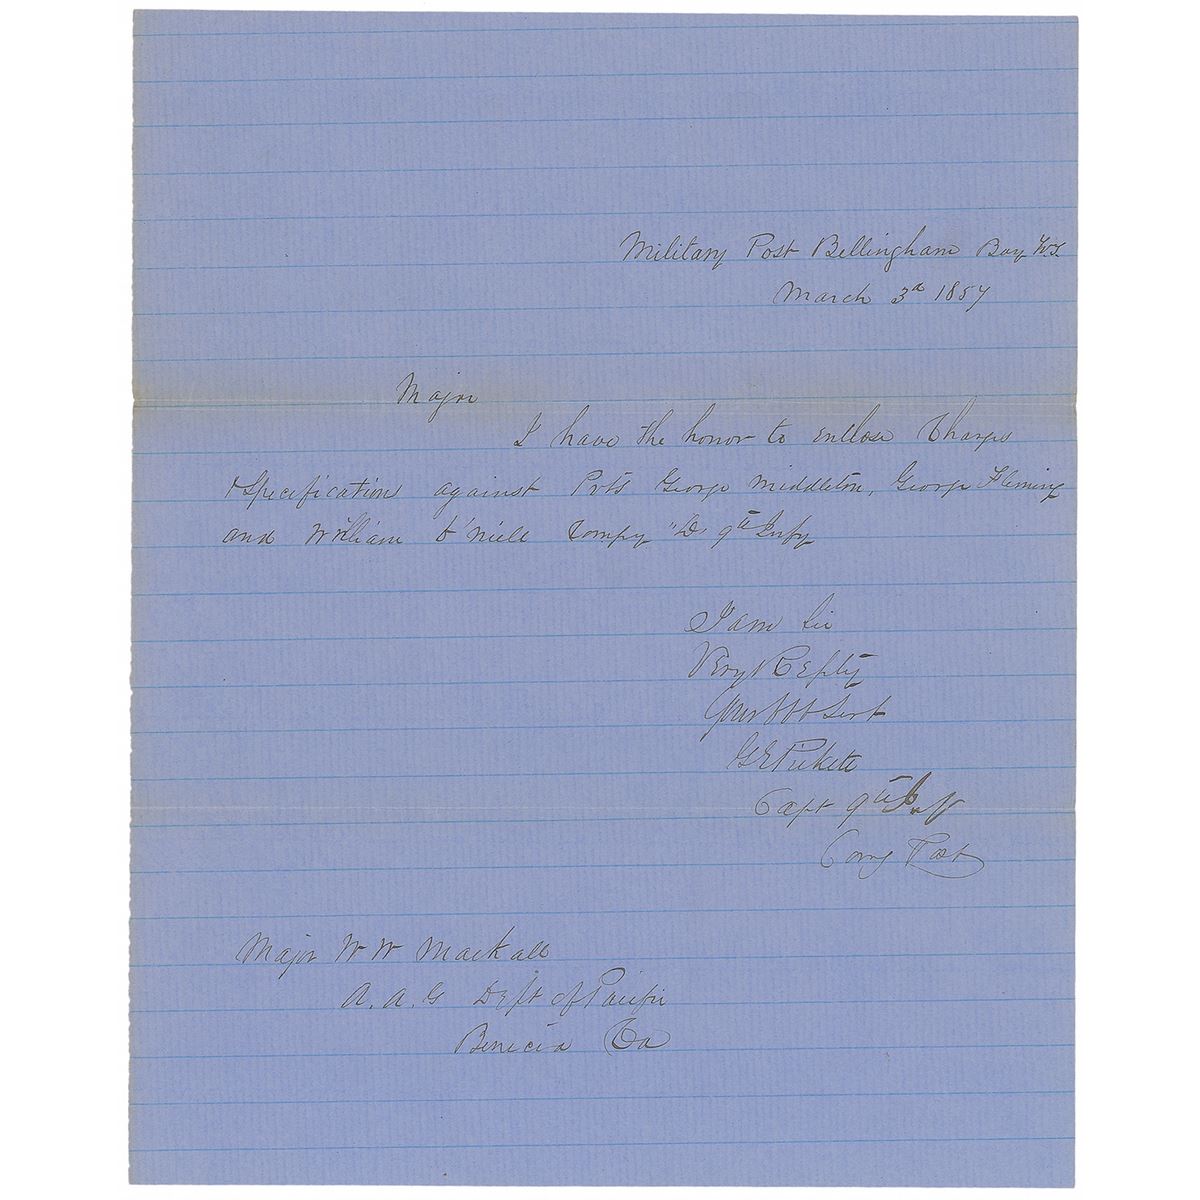 Military Post Bellingham Bay W.T.
March 3d 1857
Major
I have the honor to enclose Charges
& Specifications against Prvts George Middleton, George Fleming
and William O'Niell Compy "D" 9th Infy
I am Sir
Very Respty
Your Obt Servt
G E Pickett
Capt 9th Inf
Comg Post
Major W W Mackall
A. A. G Dept of Pacific
Benicia Ca